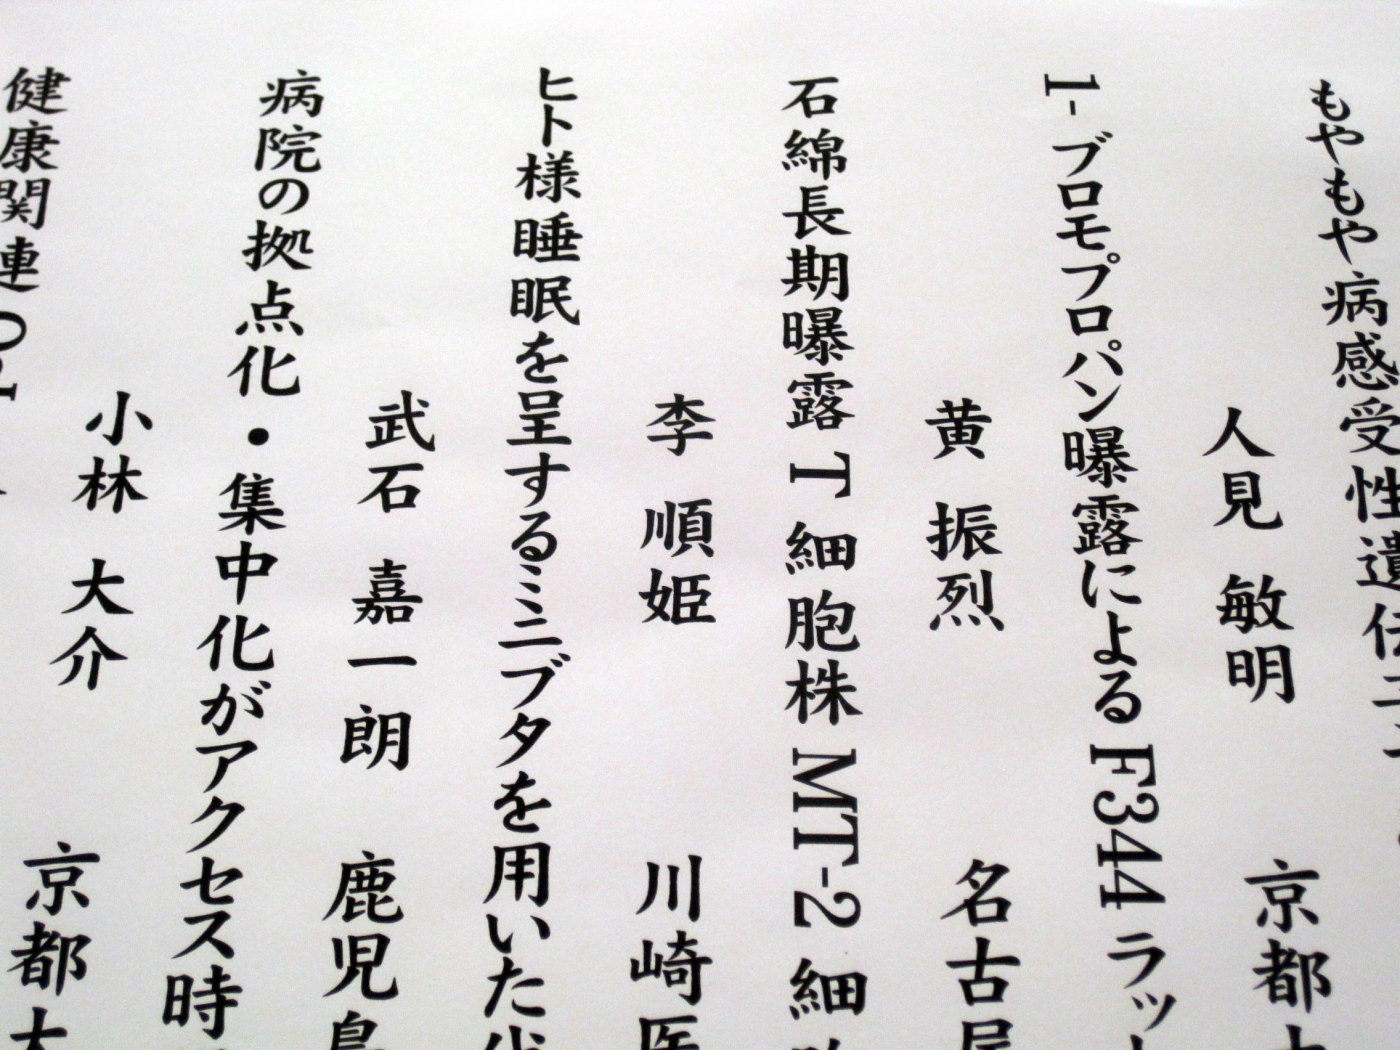 もやもや病感受性遺伝子
人見 敏明 京都大
1-ブロモプロパン曝露によるF344ラット
黄 振烈 名古屋
石綿長期曝露T細胞株MT-2細胞
李 順姫 川崎医
ヒト様睡眠を呈するミニブタを用いた
武石 嘉一朗 鹿児島
病院の拠点化・集中化がアクセス時
小林 大介 京都大
健康関連QOL